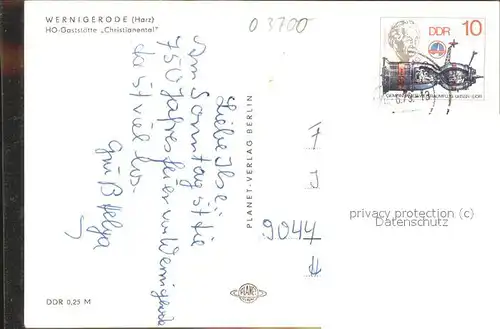 WERNIGERODE (Harz)
HO-Gaststätte „Christianental"
0 3700
DDR
10
Liebe Ilse!
Am Sonntag ist die
750 Jahresfeier in Wernigerode
da ist viel los.
Gruß Helga
PLANET-VERLAG BERLIN
PLANET
9044
privacy protection (c)
Datenschutz
DDR 0,25 M